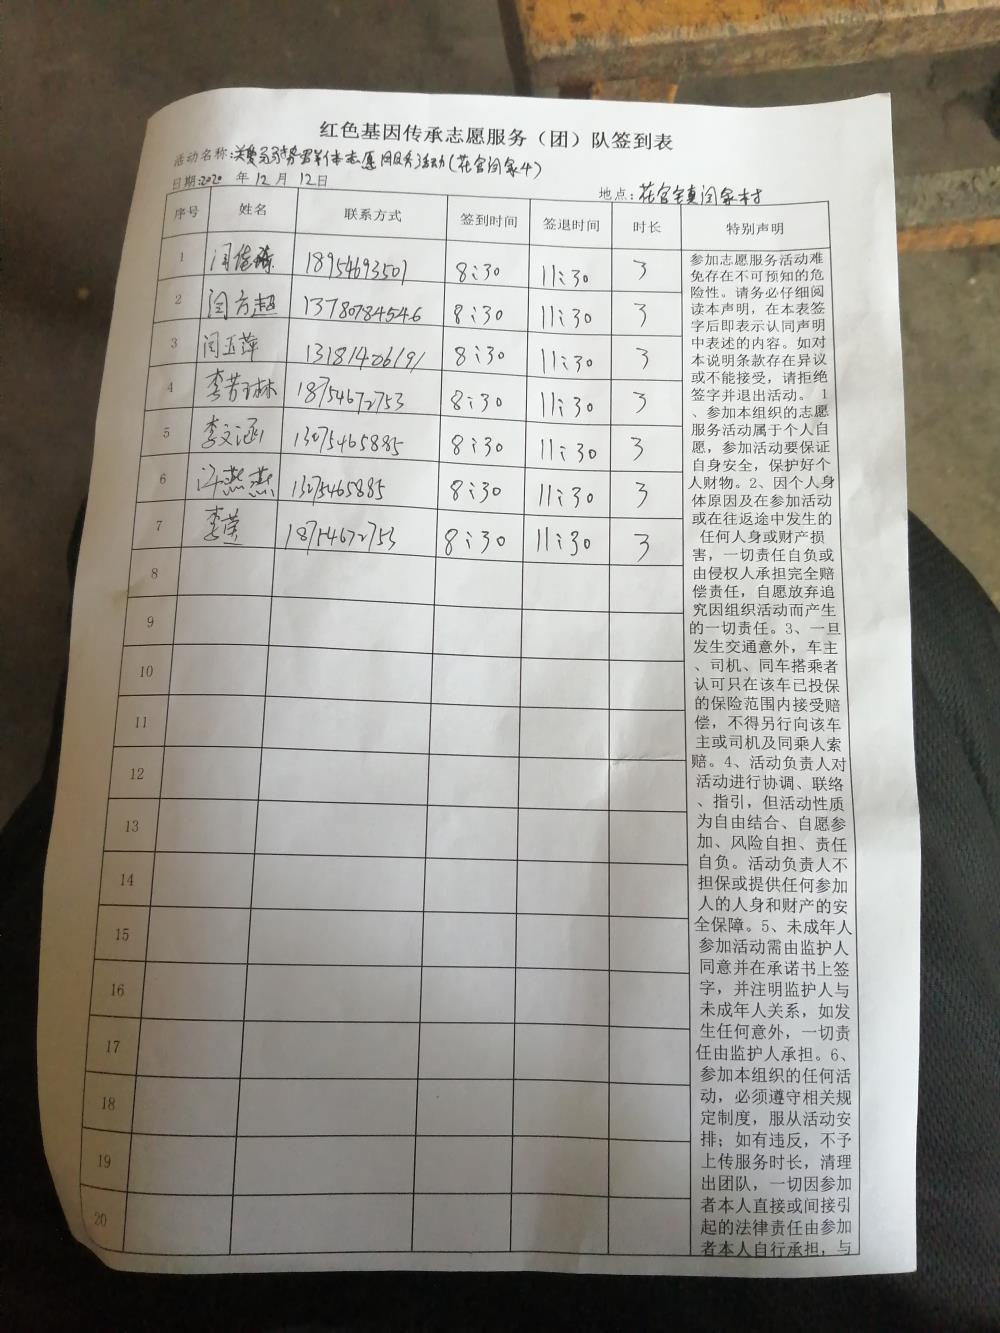 红色基因传承志愿服务（团）队签到表
活动名称:关爱 志愿服务活动(花官闫家4)
日期:2020 年12月12日
地点:花官镇闫家村
序号 姓名 联系方式 签到时间 签退时间 时长 特别声明
1 闫 18954693501 8:30 11:30 3
2 闫方超 13780784546 8:30 11:30 3
3 闫玉萍 13181406191 8:30 11:30 3
4 李芳琳 18754672753 8:30 11:30 3
5 李文涵 13075465885 8:30 11:30 3
6 许燕燕 13075465885 8:30 11:30 3
7 李营 18754672753 8:30 11:30 3
8
9
10
11
12
13
14
15
16
17
18
19
20
参加志愿服务活动难
免存在不可预知的危
险性。请务必仔细阅
读本声明，在本表签
字后即表示认同声明
中表述的内容。如对
本说明条款存在异议
或不能接受，请拒绝
签字并退出活动。 1
、参加本组织的志愿
服务活动属于个人自
愿，参加活动要保证
自身安全，保护好个
人财物。2、因个人身
体原因及在参加活动
或在往返途中发生的
任何人身或财产损
害，一切责任自负或
由侵权人承担完全赔
偿责任，自愿放弃追
究因组织活动而产生
的一切责任。3、一旦
发生交通意外，车主
、司机、同车搭乘者
认可只在该车已投保
的保险范围内接受赔
偿，不得另行向该车
主或司机及同乘人索
赔。4、活动负责人对
活动进行协调、联络
、指引，但活动性质
为自由结合、自愿参
加、风险自担、责任
自负。活动负责人不
担保或提供任何参加
人的人身和财产的安
全保障。5、未成年人
参加活动需由监护人
同意并在承诺书上签
字，并注明监护人与
未成年人关系，如发
生任何意外，一切责
任由监护人承担。6、
参加本组织的任何活
动，必须遵守相关规
定制度，服从活动安
排；如有违反，不予
上传服务时长，清理
出团队，一切因参加
者本人直接或间接引
起的法律责任由参加
者本人自行承担，与